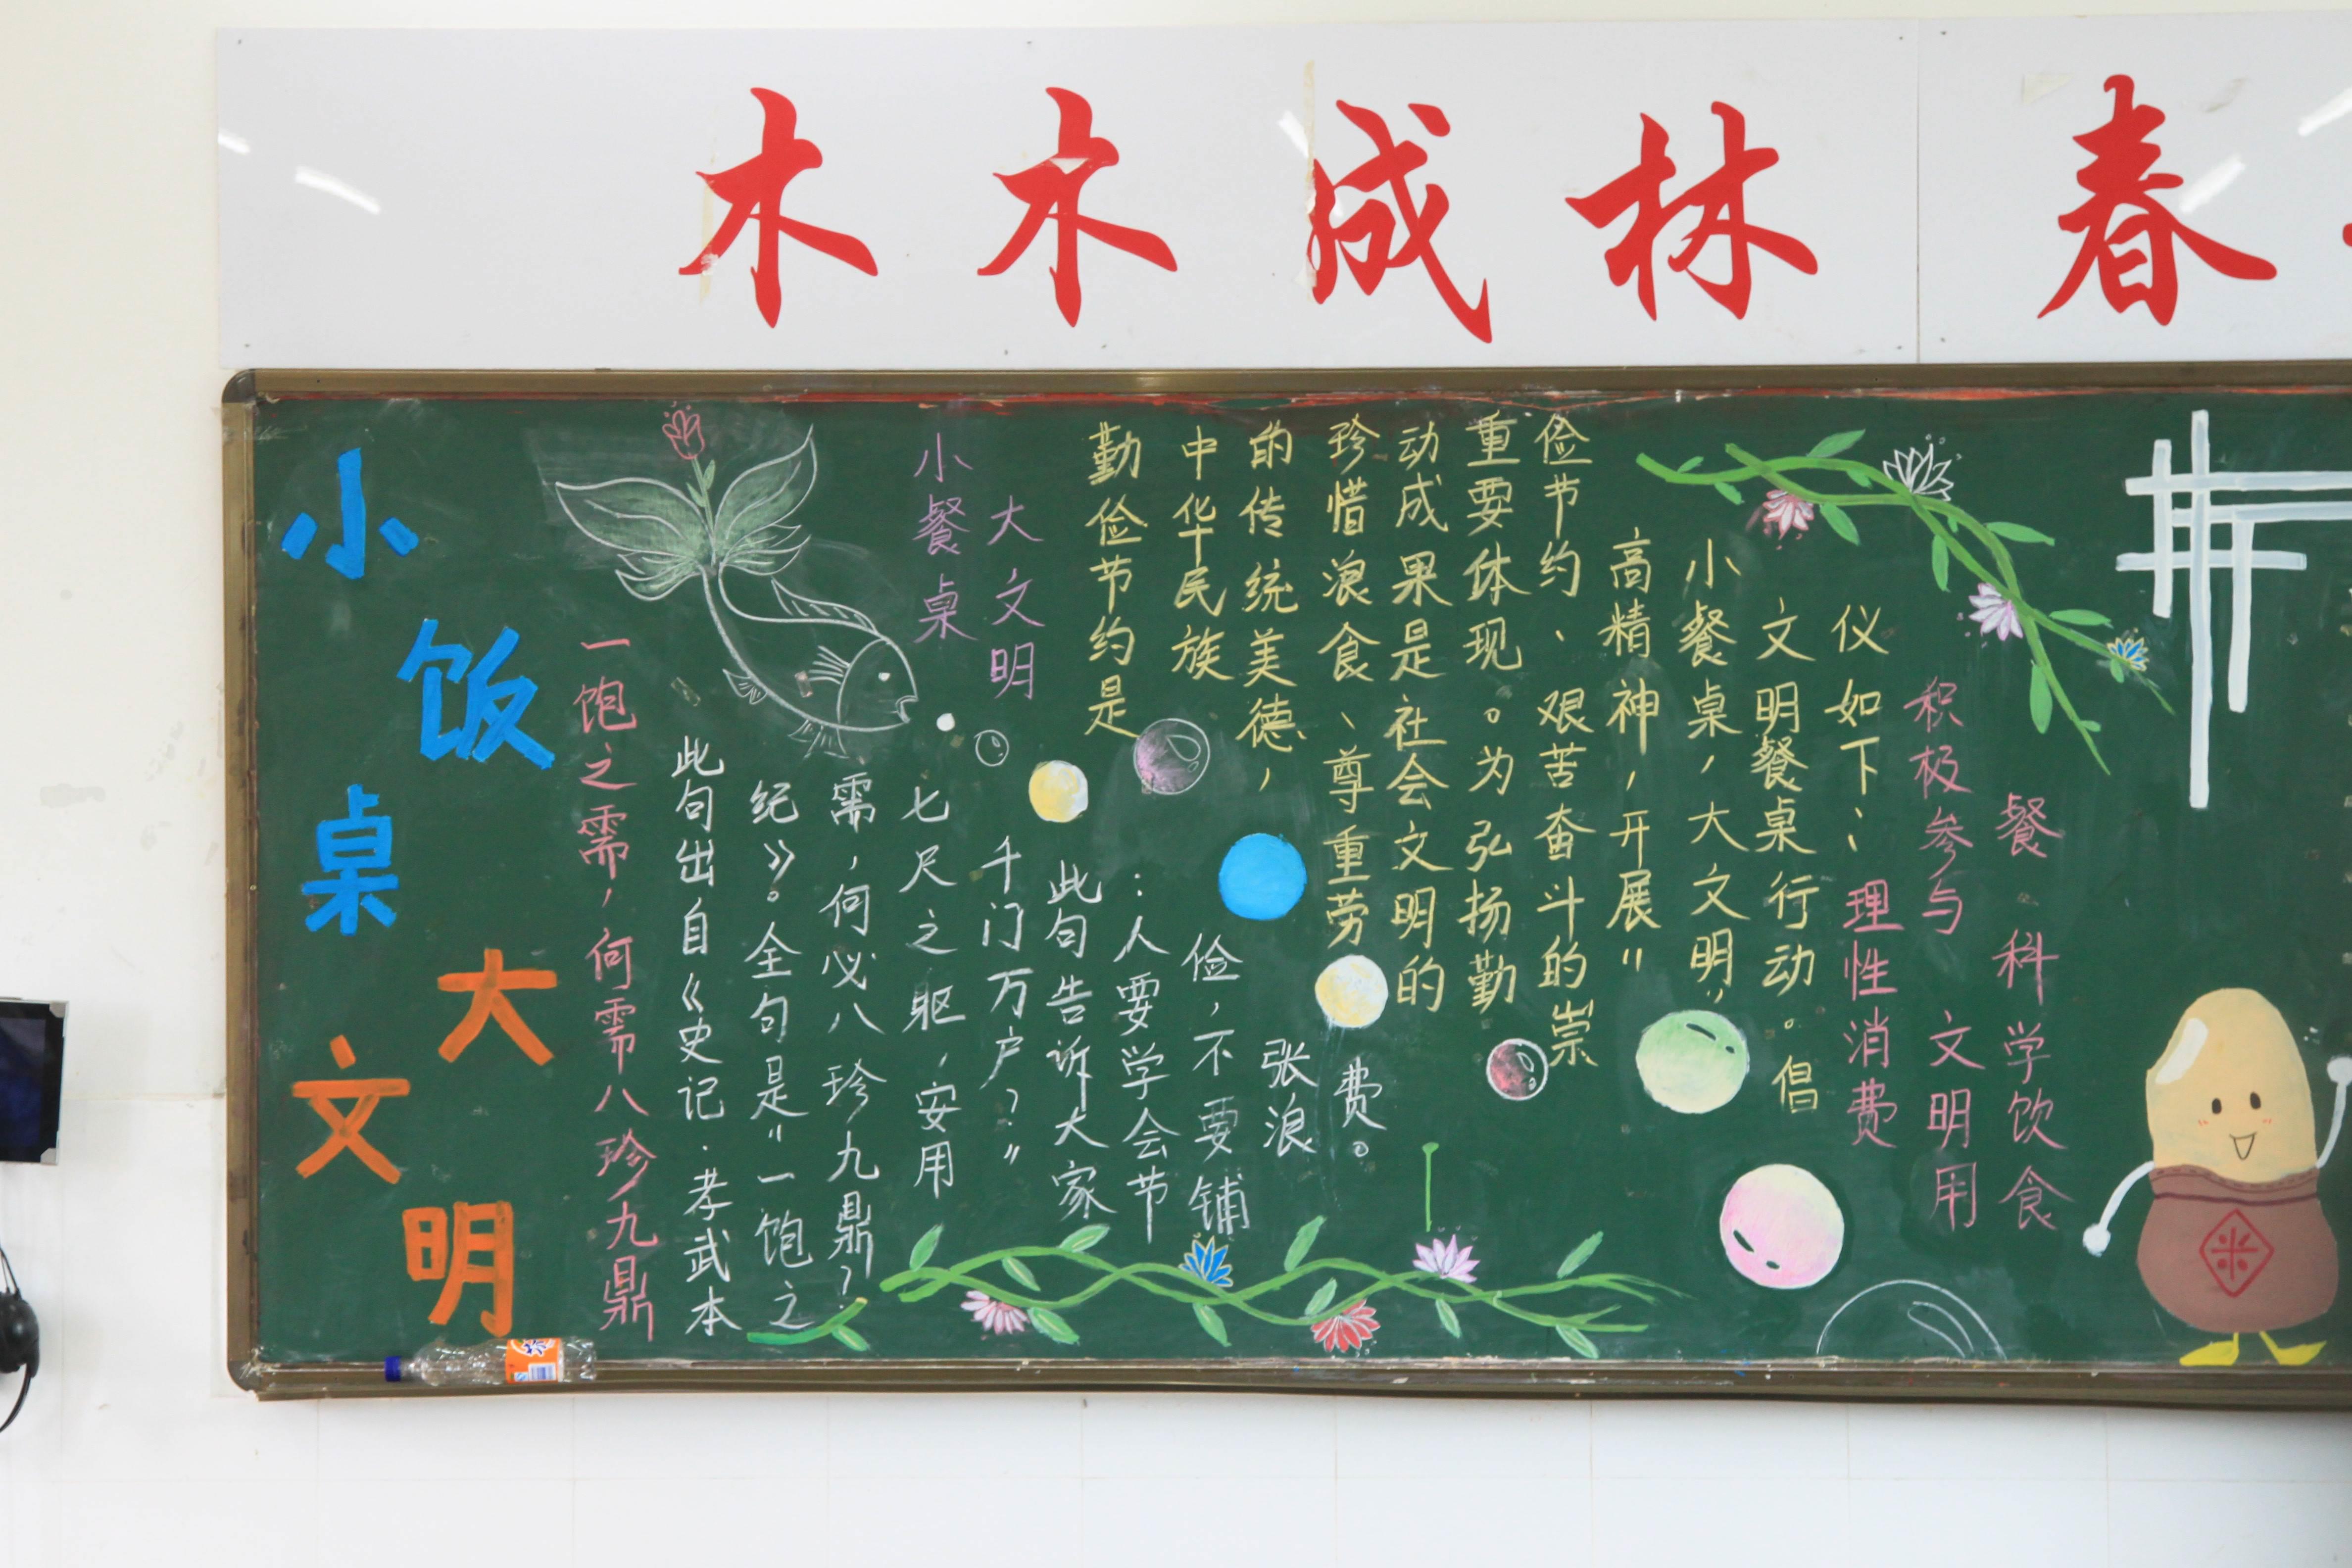 木木成林春
小饭桌
大文明
一饱之需，何需八珍九鼎
此句出自《史记·孝武本
纪》。全句是"一饱之
需，何必八珍九鼎？
七尺之躯，安用
千门万户？"
此句告诉大家
：人要学会节
俭，不要铺
张浪
费。
小餐桌
大文明
勤俭节约是
中华民族
的传统美德，
珍惜浪食、尊重劳
动成果是社会文明的
重要体现。为弘扬勤
俭节约、艰苦奋斗的崇
高精神，开展"
小餐桌，大文明"
文明餐桌行动。倡
仪如下：
理性消费
积极参与 文明用
餐·科学饮食
米